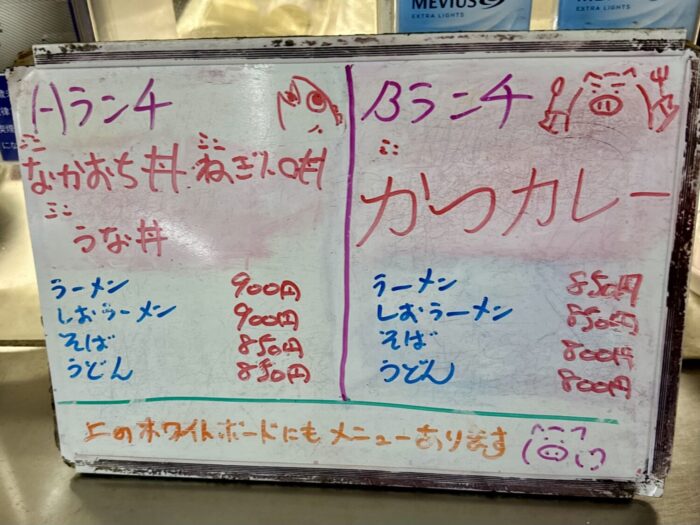 MEVIUS
EXTRA LIGHTS
EXTRA LIGHTS
Aランチ
ミニ なかおち丼 ミニ ねぎトロ丼
ミニ うな丼
ラーメン 900円
しおラーメン 900円
そば 850円
うどん 850円
Bランチ
ミニ
かつカレー
ラーメン 850円
しおラーメン 850円
そば 800円
うどん 800円
上のホワイトボードにもメニューあります